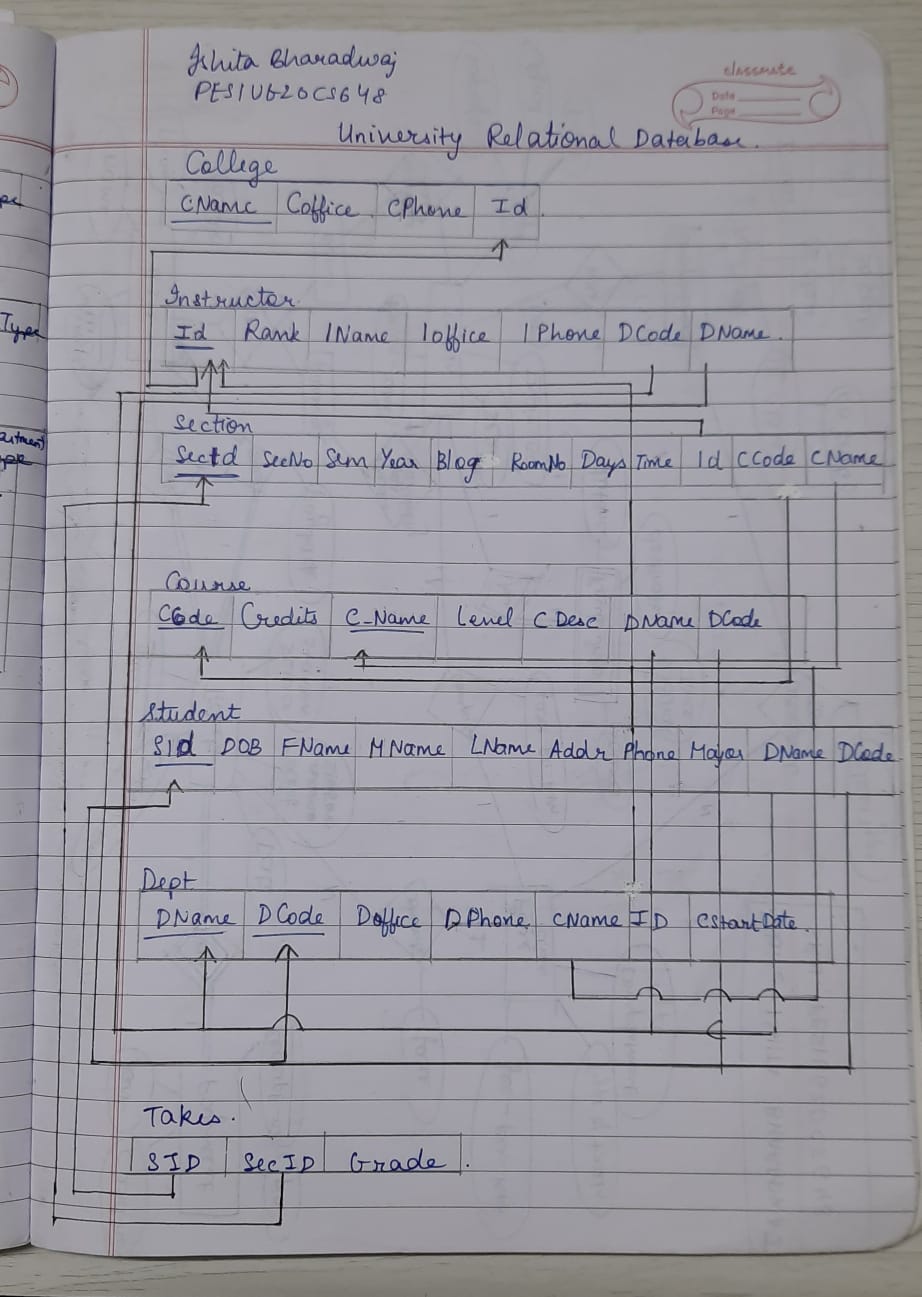 Ishita Bharadwaj
PES1UG20CS648
classmate
Date
Page
University Relational Database.
College
CName Coffice CPhone Id
Instructor
Id Rank IName Ioffice IPhone DCode DName
Section
SecId SecNo Sem Year Bldg RoomNo Days Time Id CCode CName
Course
CCode Credits C_Name Level CDesc DName DCode
Student
SId DOB FName MName LName Addr Phone Major DName DCode
Dept
DName DCode Doffice DPhone CName ID CStartDate
Takes.
SID SecID Grade